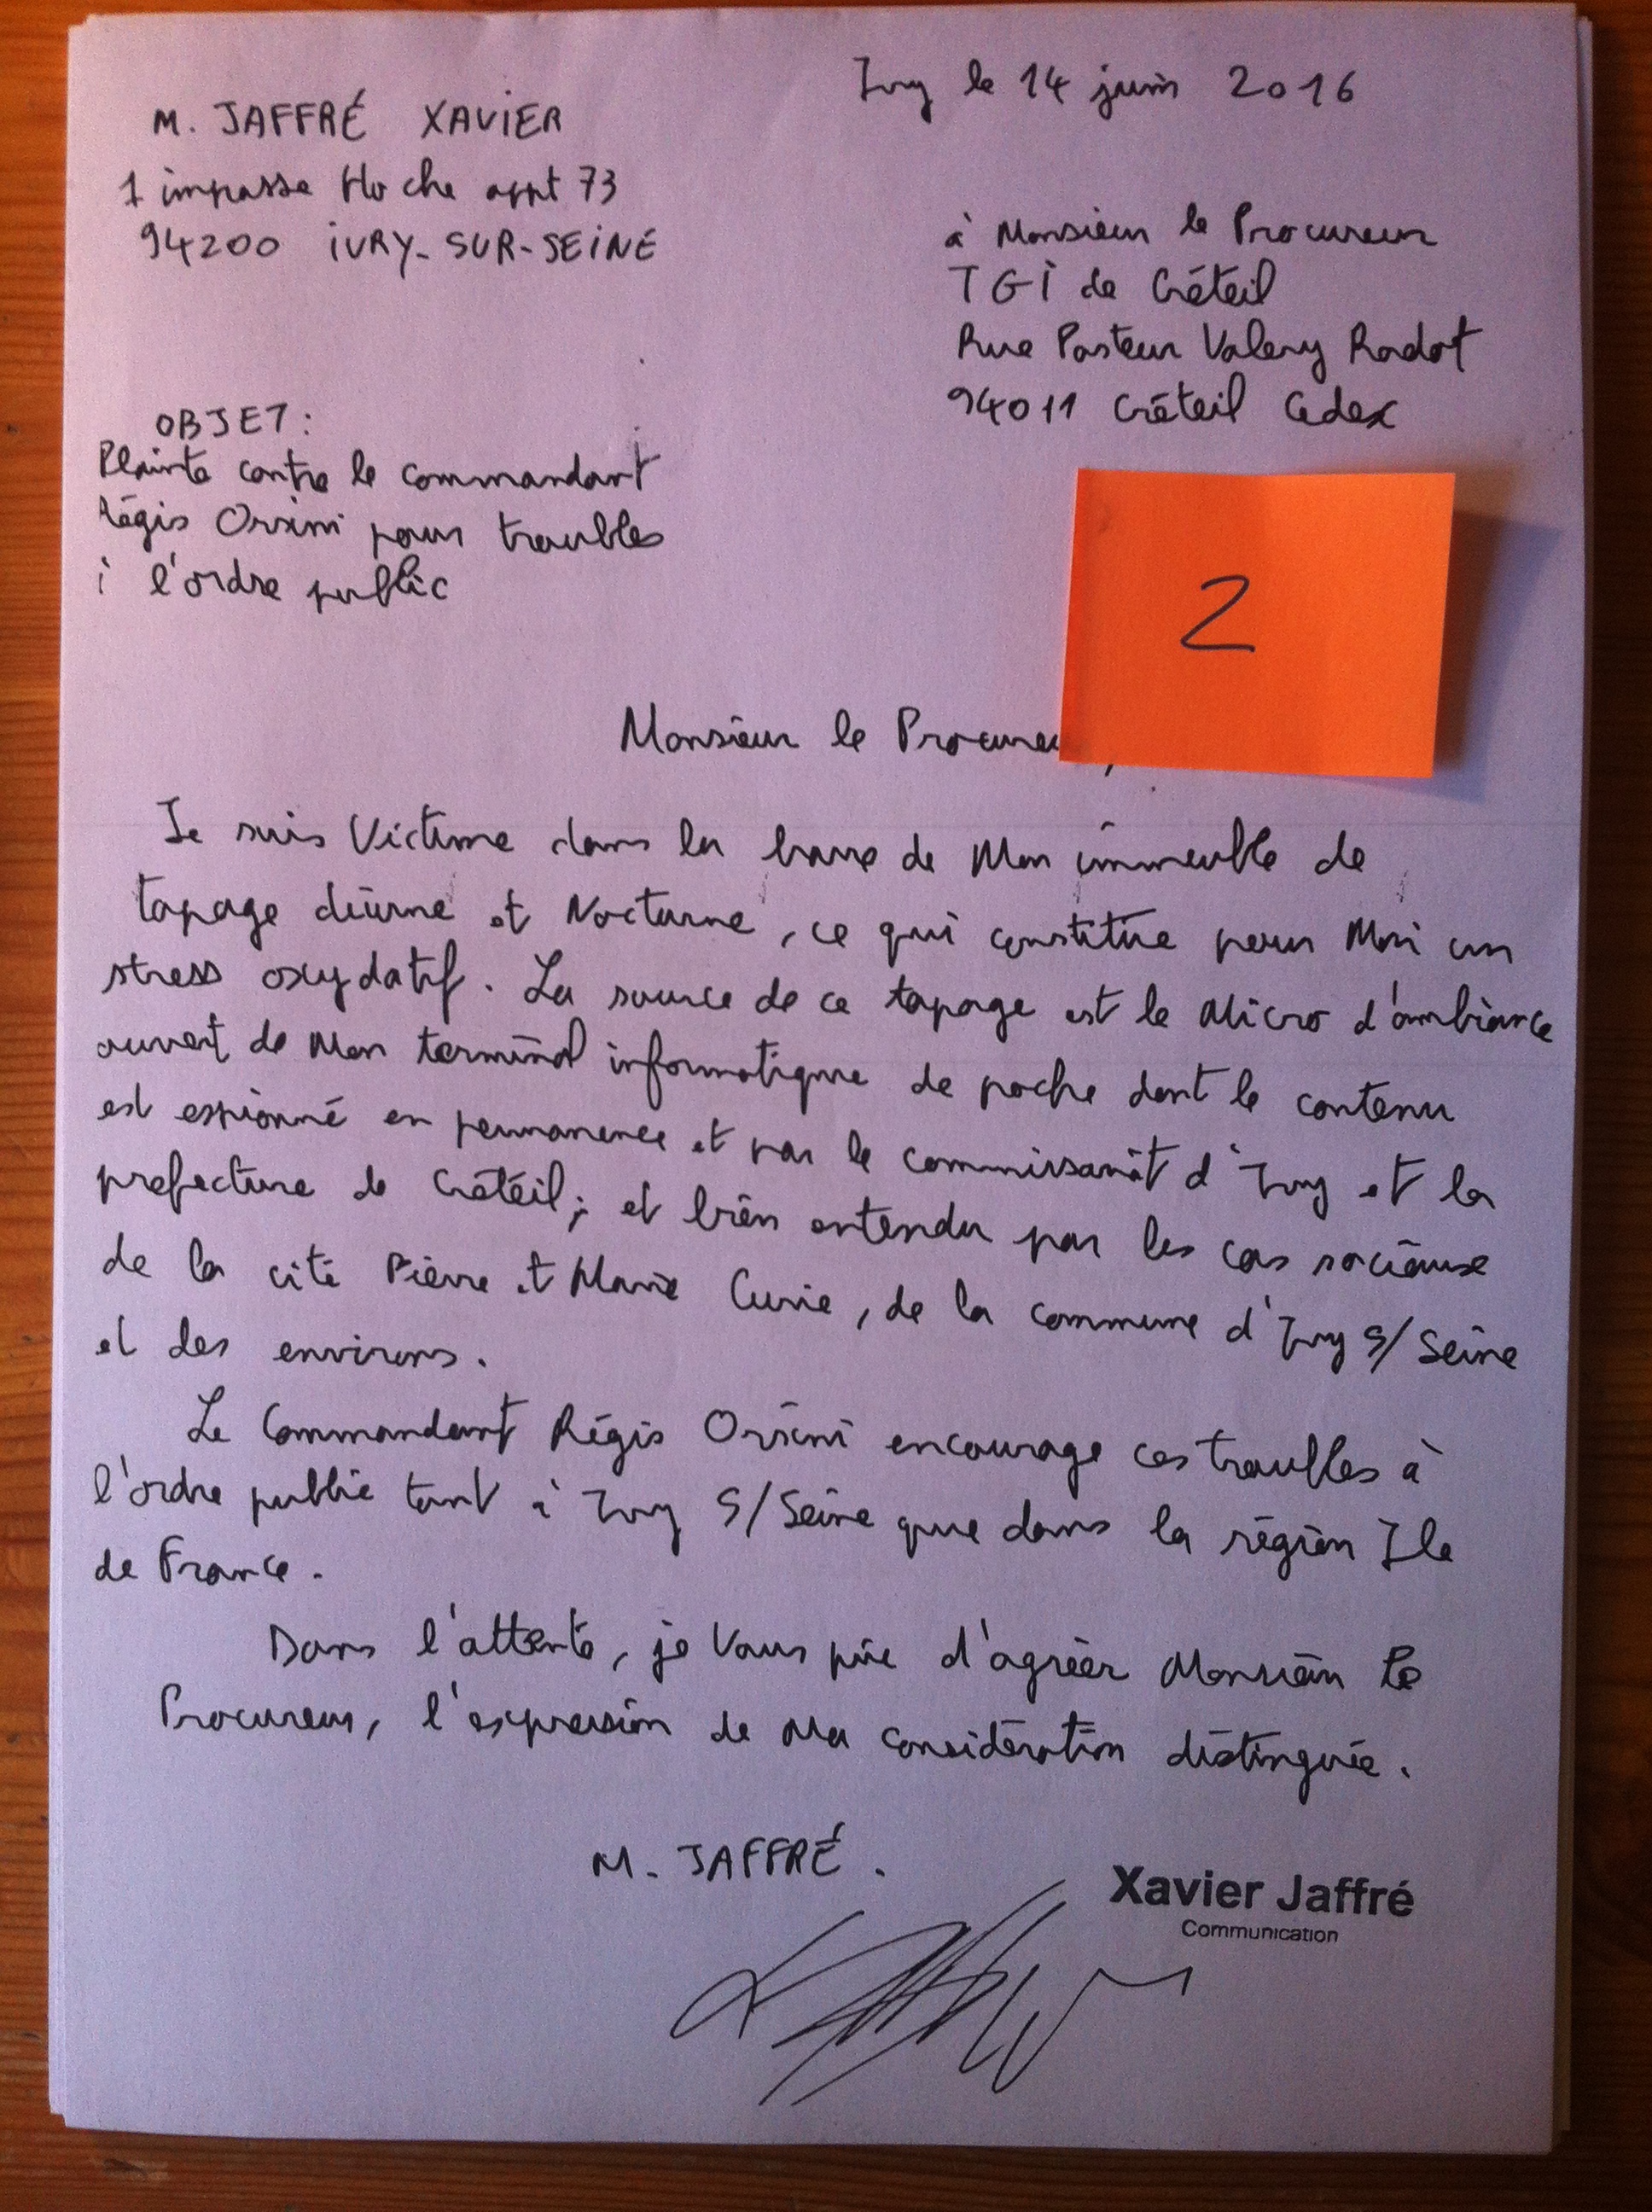 Ivry le 14 juin 2016
M. JAFFRÉ XAVIER
1 impasse Hoche appt 73
94200 IVRY-SUR-SEINE
à Monsieur le Procureur
TGI de Créteil
Rue Pasteur Valery Radot
94011 Créteil Cedex
OBJET:
Plainte contre le commandant
Régis Orsini pour troubles
à l'ordre public
2
Monsieur le Procureu
Je suis Victime dans la barre de Mon immeuble de
tapage diurne et Nocturne, ce qui constitue pour Moi un
stress oxydatif. La source de ce tapage est le Micro d'ambiance
ouvert de Mon terminal informatique de poche dont le contenu
est espionné en permanence et par le commissariat d'Ivry et la
prefecture de Créteil; et bien entendu par les cas sociaux
de la cité Pierre et Marie Curie, de la commune d'Ivry S/Seine
et des environs.
Le Commandant Régis Orsini encourage ces troubles à
l'ordre public tant à Ivry S/Seine que dans la région Ile
de France.
Dans l'attente, je Vous prie d'agréer Monsieur le
Procureur, l'expression de Ma considération distinguée.
M. JAFFRÉ.
Xavier Jaffré
Communication